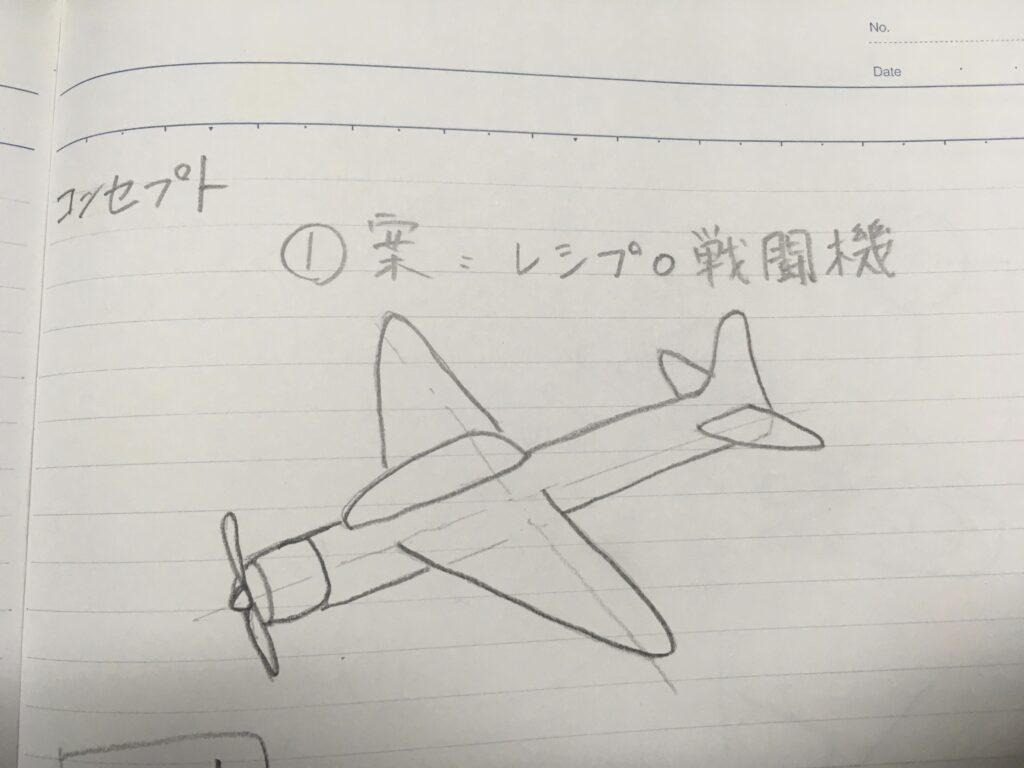 No.
Date
コンセプト
① 案:レシプロ戦闘機